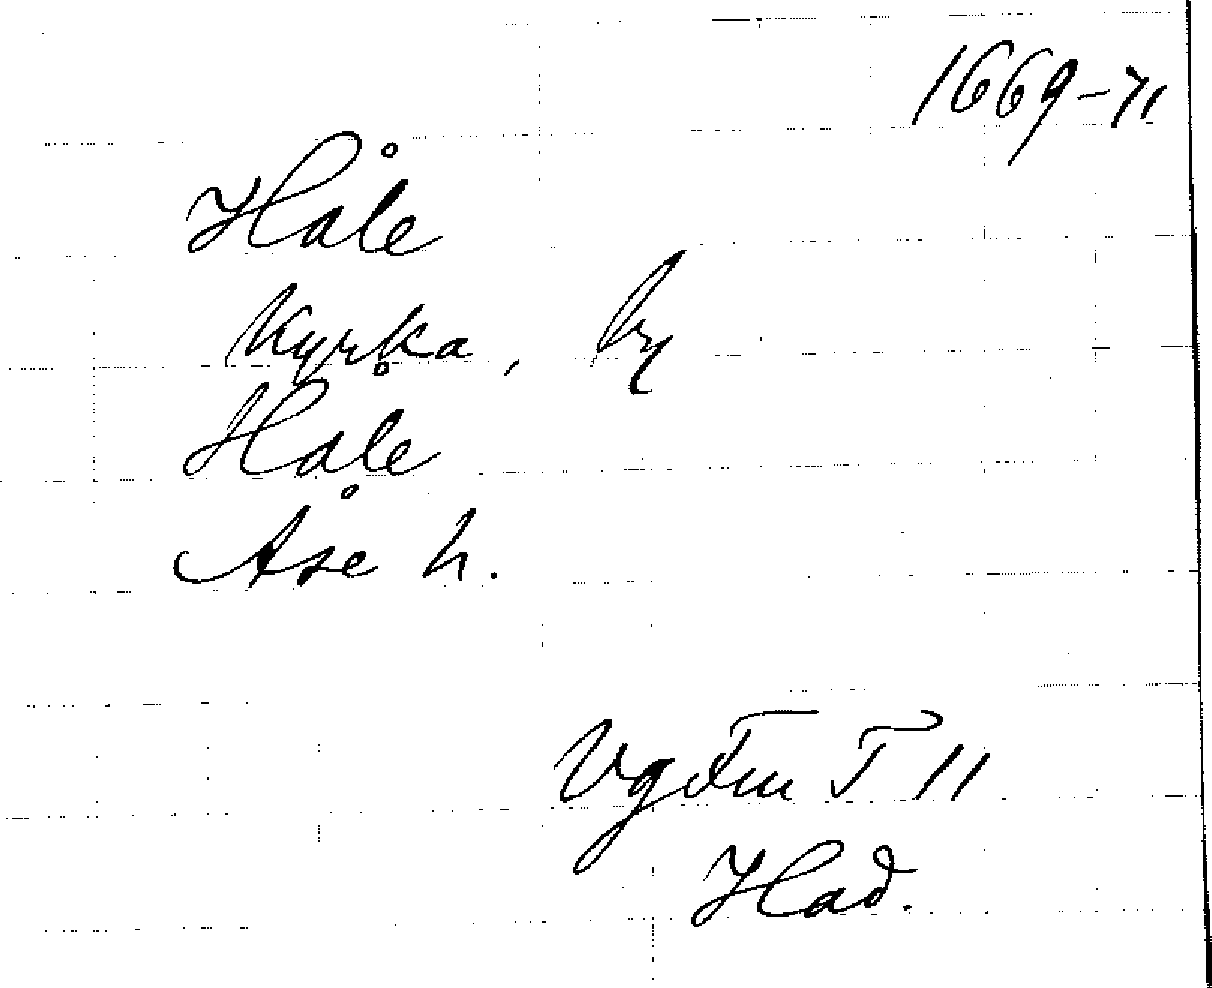 1669-71
Håle
Kyrka, by
Håle
Åse h.
Vg Fm T 11
Had.